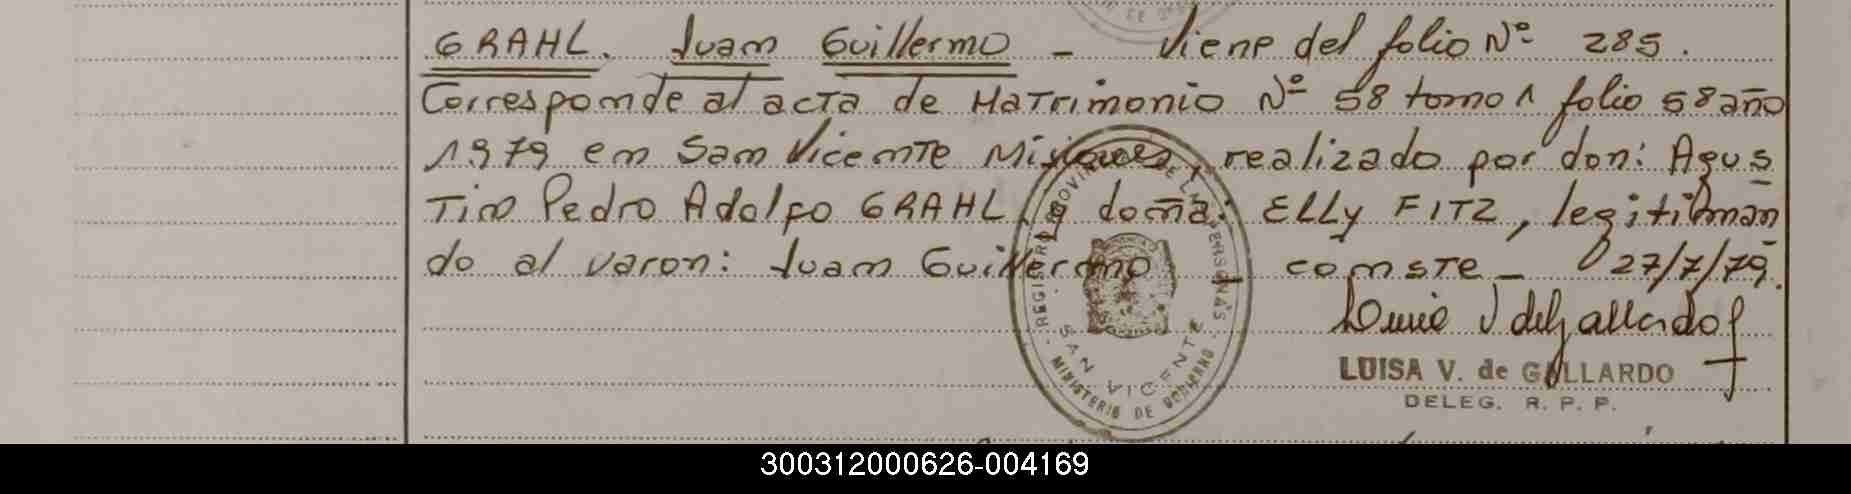 GRAHL. Juan Guillermo - Viene del folio Nº 285.
Corresponde al acta de Matrimonio Nº 58 tomo 1 folio 58 año
1979 en San Vicente Misiones, realizado por don: Agus
tin Pedro Adolfo GRAHL y doña: ELLY FITZ, legitiman
do al varon: Juan Guillermo - conste - 27/7/79.
Luisa V de Gallardo
LUISA V. de GALLARDO
DELEG. R. P. P.
REGISTRO PROVINCIAL DE LAS PERSONAS
SAN VICENTE
MINISTERIO DE GOBIERNO
300312000626-004169